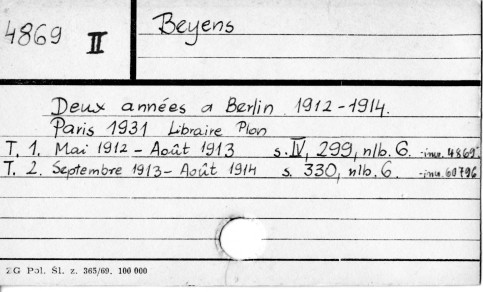 4869 II
Beyens
Deux années a Berlin 1912-1914.
Paris 1931 Libraire Plon
T. 1. Mai 1912 - Août 1913 s. IV, 299, nlb. 6. -inw. 4869.
T. 2. Septembre 1913 - Août 1914 s. 330, nlb. 6. -inw. 60796
ZG Pol. Sl. z. 365/69. 100 000